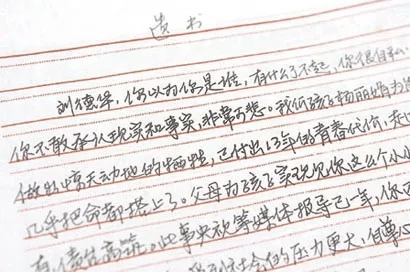 遗书
刘德华，你以为你是谁，有什么了不起，你很自私
你不敢承认现实和事实，非常可悲。我低孩子杨丽娟为
做的惊天动地的牺牲，已付出13年的青春代价，
几乎把命都搭上了。父母为孩子实现见你这么个小小
有，债台高筑。此事央视等媒体报导已一年，你
社会的压力更大，自尊心